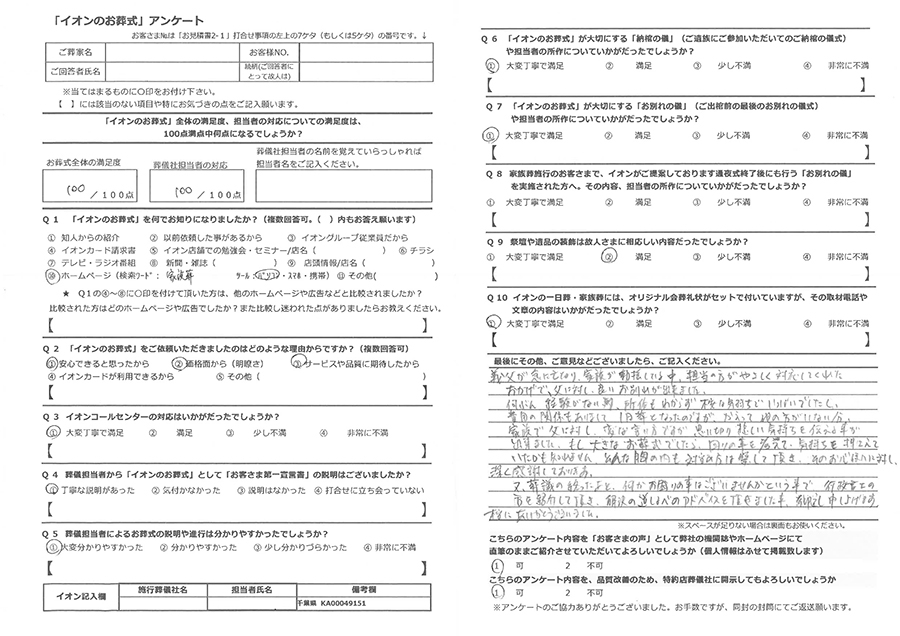 「イオンのお葬式」アンケート
お客さま№は「お見積書2-1」打合せ事項の左上の7ケタ（もしくは5ケタ）の番号です。↓
ご葬家名 お客様NO.
ご回答者氏名 続柄(ご回答者にとって故人は)
※当てはまるものに〇印をお付け下さい。
【　】には該当のない項目や特にお気づきの点をご記入願います。
「イオンのお葬式」全体の満足度、担当者の対応についての満足度は、
100点満点中何点になるでしょうか？
お葬式全体の満足度 葬儀社担当者の対応 葬儀社担当者の名前を覚えていらっしゃれば
担当者名をご記入ください。
100 ／100点 100 ／100点
Q 1 「イオンのお葬式」を何でお知りになりましたか？（複数回答可。（　）内もお答え願います）
① 知人からの紹介 ② 以前依頼した事があるから ③ イオングループ従業員だから
④ イオンカード請求書 ⑤ イオン店舗での勉強会・セミナー/店名（　） ⑥ チラシ
⑦ テレビ・ラジオ番組 ⑧ 新聞・雑誌（　） ⑨ 店頭情報/店名（　）
⑩ ホームページ（検索ワード： 家族葬 ツール パソコン・スマホ・携帯） ⑪ その他(　)
★ Q1の④～⑧に〇印を付けて頂いた方は、他のホームページや広告などと比較されましたか？
比較された方はどのホームページや広告でしたか？また比較し迷われた点がありましたらお教えください。
【　】
Q 2 「イオンのお葬式」をご依頼いただきましたのはどのような理由からですか？（複数回答可）
①安心できると思ったから ②価格面から（明瞭さ） ③サービスや品質に期待したから
④イオンカードが利用できるから ⑤ その他（
【　】
Q 3 イオンコールセンターの対応はいかがだったでしょうか？
① 大変丁寧で満足 ② 満足 ③ 少し不満 ④ 非常に不満
【　】
Q 4 葬儀担当者から「イオンのお葬式」として「お客さま第一宣誓書」の説明はございましたか？
①丁寧な説明があった ② 気付かなかった ③ 説明はなかった ④ 打合せに立ち会っていない
【　】
Q 5 葬儀担当者によるお葬式の説明や進行は分かりやすかったでしょうか？
①大変分かりやすかった ② 分かりやすかった ③ 少し分かりづらかった ④ 非常に不満
【　】
イオン記入欄 施行葬儀社名 担当者氏名 備考欄
千葉県 KA00049151
Q 6 「イオンのお葬式」が大切にする「納棺の儀」（ご遺族にご参加いただいてのご納棺の儀式）
や担当者の所作についていかがだったでしょうか？
① 大変丁寧で満足 ② 満足 ③ 少し不満 ④ 非常に不満
【　】
Q 7 「イオンのお葬式」が大切にする「お別れの儀」（ご出棺前の最後のお別れの儀式）
や担当者の所作について、いかがだったでしょうか？
① 大変丁寧で満足 ② 満足 ③ 少し不満 ④ 非常に不満
【　】
Q 8 家族葬施行のお客さまで、イオンがご提案しております通夜式終了後にも行う「お別れの儀」
を実施された方へ。その内容、担当者の所作についていかがだったでしょうか？
① 大変丁寧で満足 ② 満足 ③ 少し不満 ④ 非常に不満
【　】
Q 9 祭壇や遺品の装飾は故人さまに相応しい内容だったでしょうか？
① 大変丁寧で満足 ② 満足 ③ 少し不満 ④ 非常に不満
【　】
Q 10 イオンの一日葬・家族葬には、オリジナル会葬礼状がセットで付いていますが、その取材電話や
文章の内容はいかがだったでしょうか？
① 大変丁寧で満足 ② 満足 ③ 少し不満 ④ 非常に不満
【　】
最後にその他、ご意見などございましたら、ご記入ください。
義父が急に亡なり、家族が動揺している中、担当の方がやさしく対応してくれた
おかげで、父に対し、良いお別れが出来ました。
何ぶん経験がない為、所作もわからず
家族で父に対し、
いたかも知れません。
深く感謝しております。
※スペースが足りない場合は裏面もお使いください。
こちらのアンケート内容を「お客さまの声」として弊社の機関誌やホームページにて
直筆のままご紹介させていただいてよろしいでしょうか（個人情報はふせて掲載致します）
1 可 2 不可
こちらのアンケート内容を、品質改善のため、特約店葬儀社に開示してもよろしいでしょうか
1 可 2 不可
※アンケートのご協力ありがとうございました。お手数ですが、同封の封筒にてご返送願います。